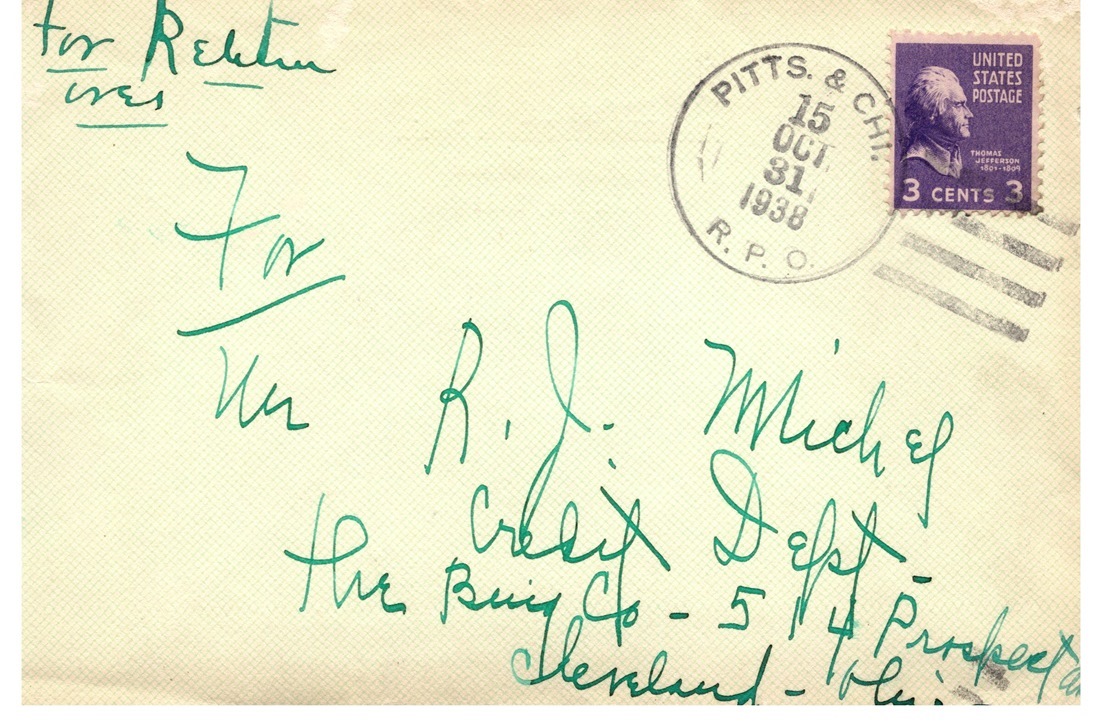 For Relatin
ives
PITTS. & CHI.
15
OCT.
31,
1938
R. P. O.
UNITED
STATES
POSTAGE
THOMAS
JEFFERSON
1801-1809
3 CENTS 3
For
Mr R. J. Michel
Credit Dept -
The Co - 514 Prospect
Cleveland - Ohio